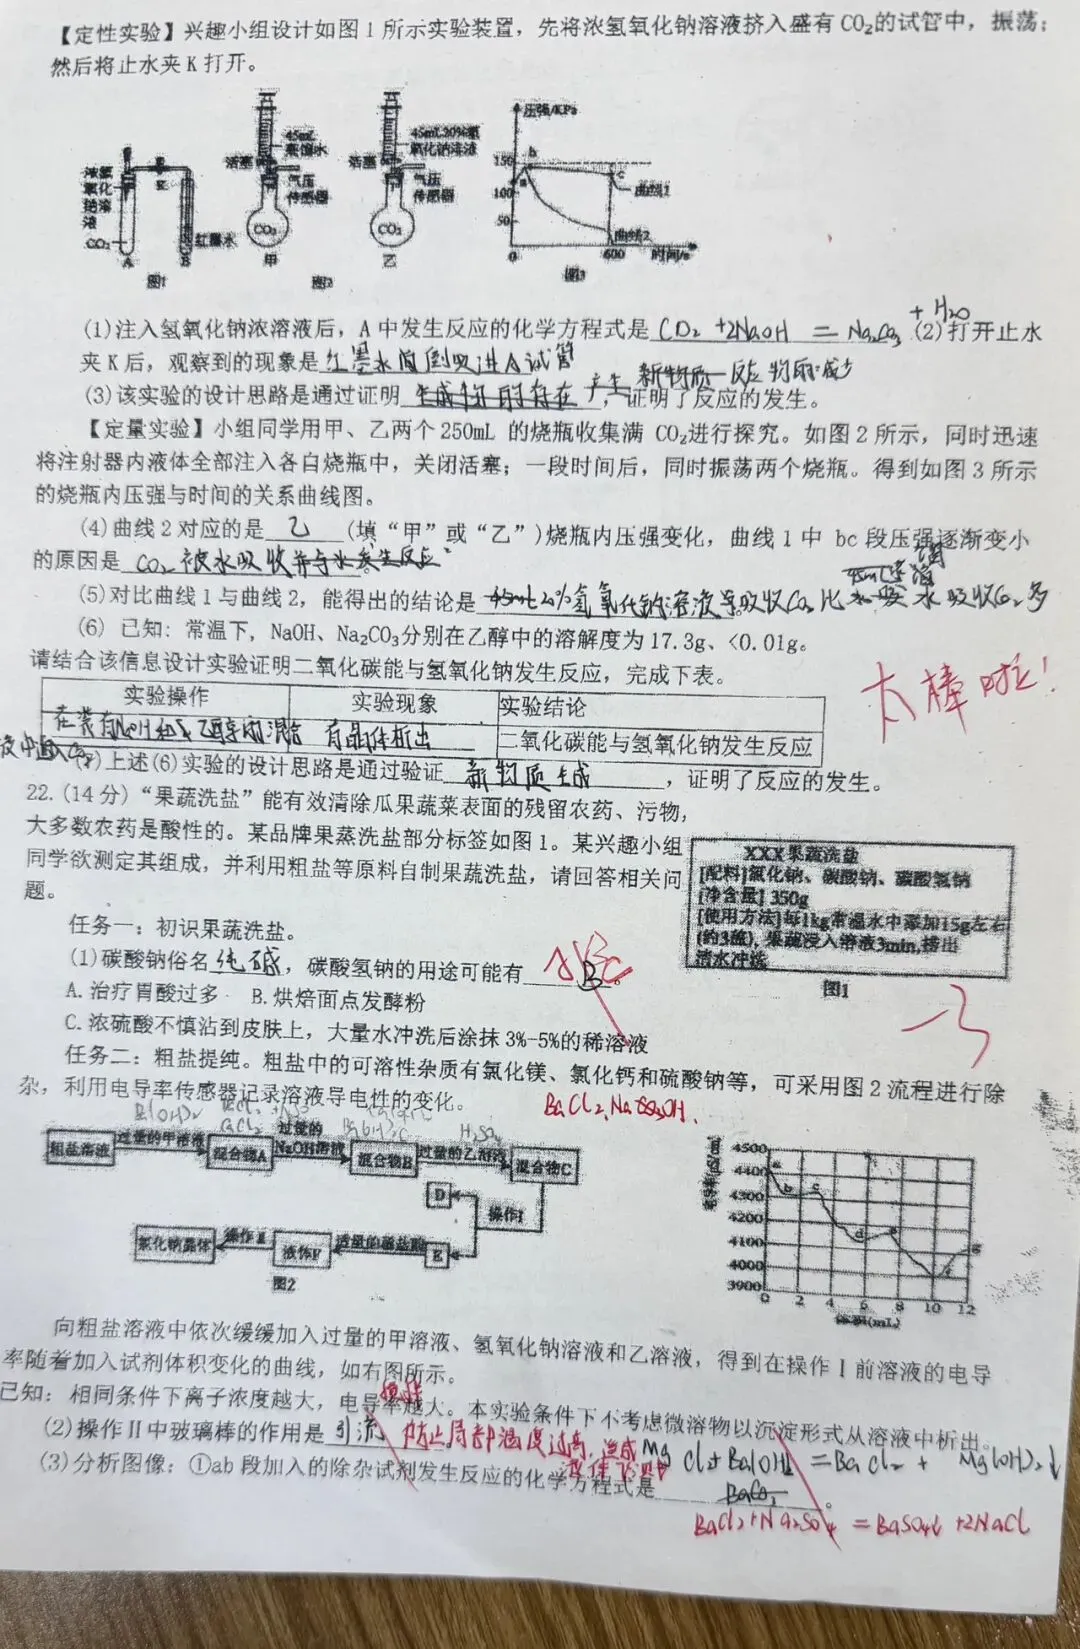 【定性实验】兴趣小组设计如图1所示实验装置，先将浓氢氧化钠溶液挤入盛有CO₂的试管中，振荡；
然后将止水夹K打开。
浓氢氧化钠溶液
K
CO₂
红墨水
A
B
图1
45mL蒸馏水
活塞
气压传感器
CO₂
甲
图2
45mL20%氢氧化钠溶液
活塞
气压传感器
CO₂
乙
压强/KPa
150
100
50
0
a
b
c
曲线1
曲线2
600
时间/s
图3
(1)注入氢氧化钠浓溶液后，A中发生反应的化学方程式是 CO₂+2NaOH = Na₂CO₃ + H₂O (2)打开止水
夹K后，观察到的现象是 红墨水倒吸进A试管
(3)该实验的设计思路是通过证明 生成物的存在 产生新物质 反应物的减少，证明了反应的发生。
【定量实验】小组同学用甲、乙两个250mL的烧瓶收集满CO₂进行探究。如图2所示，同时迅速
将注射器内液体全部注入各自烧瓶中，关闭活塞；一段时间后，同时振荡两个烧瓶。得到如图3所示
的烧瓶内压强与时间的关系曲线图。
(4)曲线2对应的是 乙 (填“甲”或“乙”)烧瓶内压强变化，曲线1中bc段压强逐渐变小
的原因是 CO₂被水吸收并与水发生反应。
(5)对比曲线1与曲线2，能得出的结论是 45mL20%氢氧化钠溶液吸收CO₂比 水吸收CO₂多
(6) 已知：常温下，NaOH、Na₂CO₃分别在乙醇中的溶解度为17.3g、<0.01g。
请结合该信息设计实验证明二氧化碳能与氢氧化钠发生反应，完成下表。
实验操作 实验现象 实验结论
在装有NaOH和乙醇的混合液中通入CO₂ 有晶体析出 二氧化碳能与氢氧化钠发生反应
太棒啦！
(7)上述(6)实验的设计思路是通过验证 新物质生成，证明了反应的发生。
22.(14分)“果蔬洗盐”能有效清除瓜果蔬菜表面的残留农药、污物，
大多数农药是酸性的。某品牌果蒸洗盐部分标签如图1。某兴趣小组
同学欲测定其组成，并利用粗盐等原料自制果蔬洗盐，请回答相关问
题。
XXX果蔬洗盐
[配料]氯化钠、碳酸钠、碳酸氢钠
[净含量]350g
[使用方法]每1kg常温水中添加15g左右
(约3瓶)，果蔬浸入溶液3min,捞出
清水冲洗
图1
任务一：初识果蔬洗盐。
(1)碳酸钠俗名 纯碱，碳酸氢钠的用途可能有 B。
ABC
A.治疗胃酸过多 B.烘焙面点发酵粉
C.浓硫酸不慎沾到皮肤上，大量水冲洗后涂抹3%-5%的稀溶液
-3
任务二：粗盐提纯。粗盐中的可溶性杂质有氯化镁、氯化钙和硫酸钠等，可采用图2流程进行除
杂，利用电导率传感器记录溶液导电性的变化。
粗盐溶液
过量的甲溶液
混合物A
过量的NaOH溶液
混合物B
过量的乙溶液
混合物C
操作Ⅰ
D
E
适量的稀盐酸
液体F
操作Ⅱ
氯化钠晶体
图2
4500
4400
4300
4200
4100
4000
3900
0 2 4 6 8 10 12
a b c d e f g
体积(mL)
向粗盐溶液中依次缓缓加入过量的甲溶液、氢氧化钠溶液和乙溶液，得到在操作Ⅰ前溶液的电导
率随着加入试剂体积变化的曲线，如右图所示。
已知：相同条件下离子浓度越大，电导率越大。本实验条件下不考虑微溶物以沉淀形式从溶液中析出。
(2)操作Ⅱ中玻璃棒的作用是 引流 搅拌 防止局部温度过高，造成液体飞溅
(3)分析图像：①ab段加入的除杂试剂发生反应的化学方程式是 MgCl₂+Ba(OH)₂ =BaCl₂ + Mg(OH)₂↓。
BaCl₂+Na₂SO₄ =BaSO₄↓+2NaCl